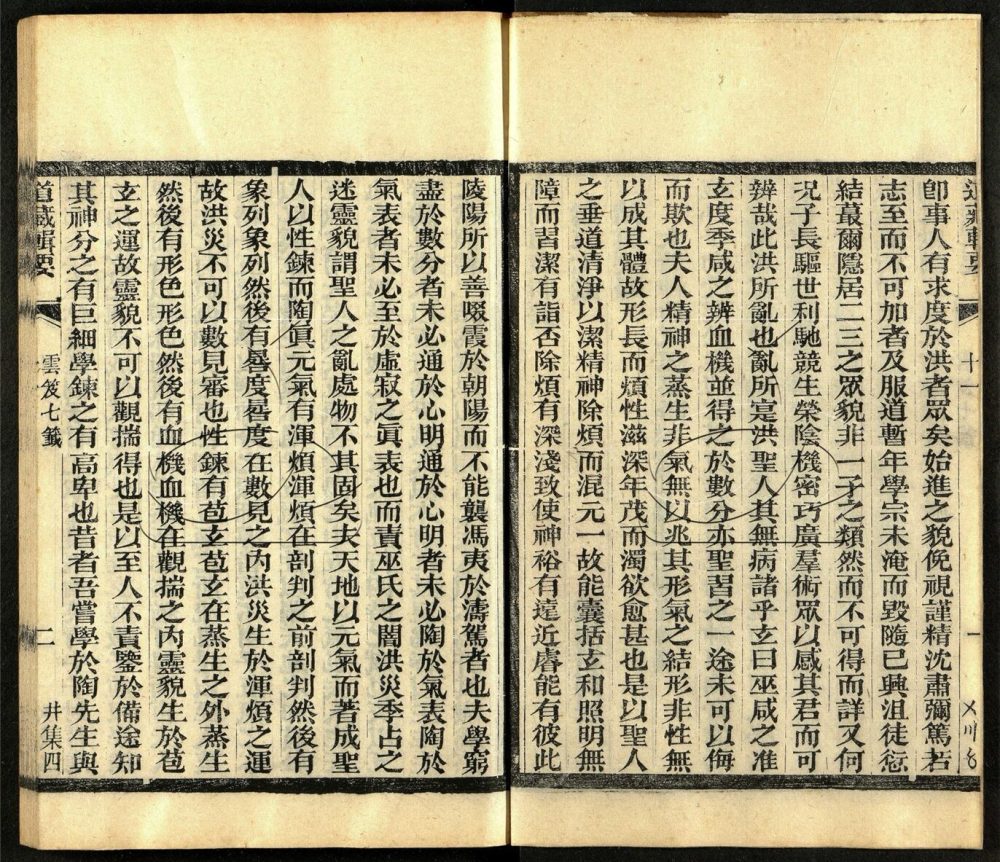 卽事人有求度於洪者眾矣始進之貌俛視謹精沈肅彌篤若
志至而不可加者及服道暫年學宗未淹而毀隨已興沮徒愆
結蕞爾隱居二三之眾貌非一子之類然而不可得而詳又何
況子長驅世利馳競生榮陰機密巧廣羣術眾以感其君而可
辨哉此洪所亂也亂所寔洪聖人其無病諸乎玄曰巫咸之准
玄度季咸之辨血機並得之於數分亦聖習之一途未可以侮
而欺也夫人精神之蒸生非氣無以兆其形氣之結形非性無
以成其體故形長而煩性滋深年茂而濁欲愈甚也是以聖人
之垂道清淨以潔精神除煩而混元一故能囊括玄和照明無
障而習潔有詣否除煩有深淺致使神裕有遠近睿能有彼此
陵陽所以善啜霞於朝陽而不能襲馮夷於濤駕者也夫學窮
盡於數分者未必通於心明通於心明者未必陶於氣表陶於
氣表者未必至於虛寂之眞表也而責巫氏之闇洪災季占之
迷靈貌謂聖人之亂處物不其固矣夫天地以元氣而著成聖
人以性鍊而陶眞元氣有渾煩渾煩在剖判之前剖判然後有
象列象列然後有晷度晷度在數見之內洪災生於渾煩之運
故洪災不可以數見審也性鍊有苞玄苞玄在蒸生之外蒸生
然後有形色形色然後有血機血機在觀揣之內靈貌生於苞
玄之運故靈貌不可以觀揣得也是以至人不責鑒於備途知
其神分之有巨細學鍊之有高卑也昔者吾嘗學於陶先生與
道藏輯要 雲笈七籤 二 井集四